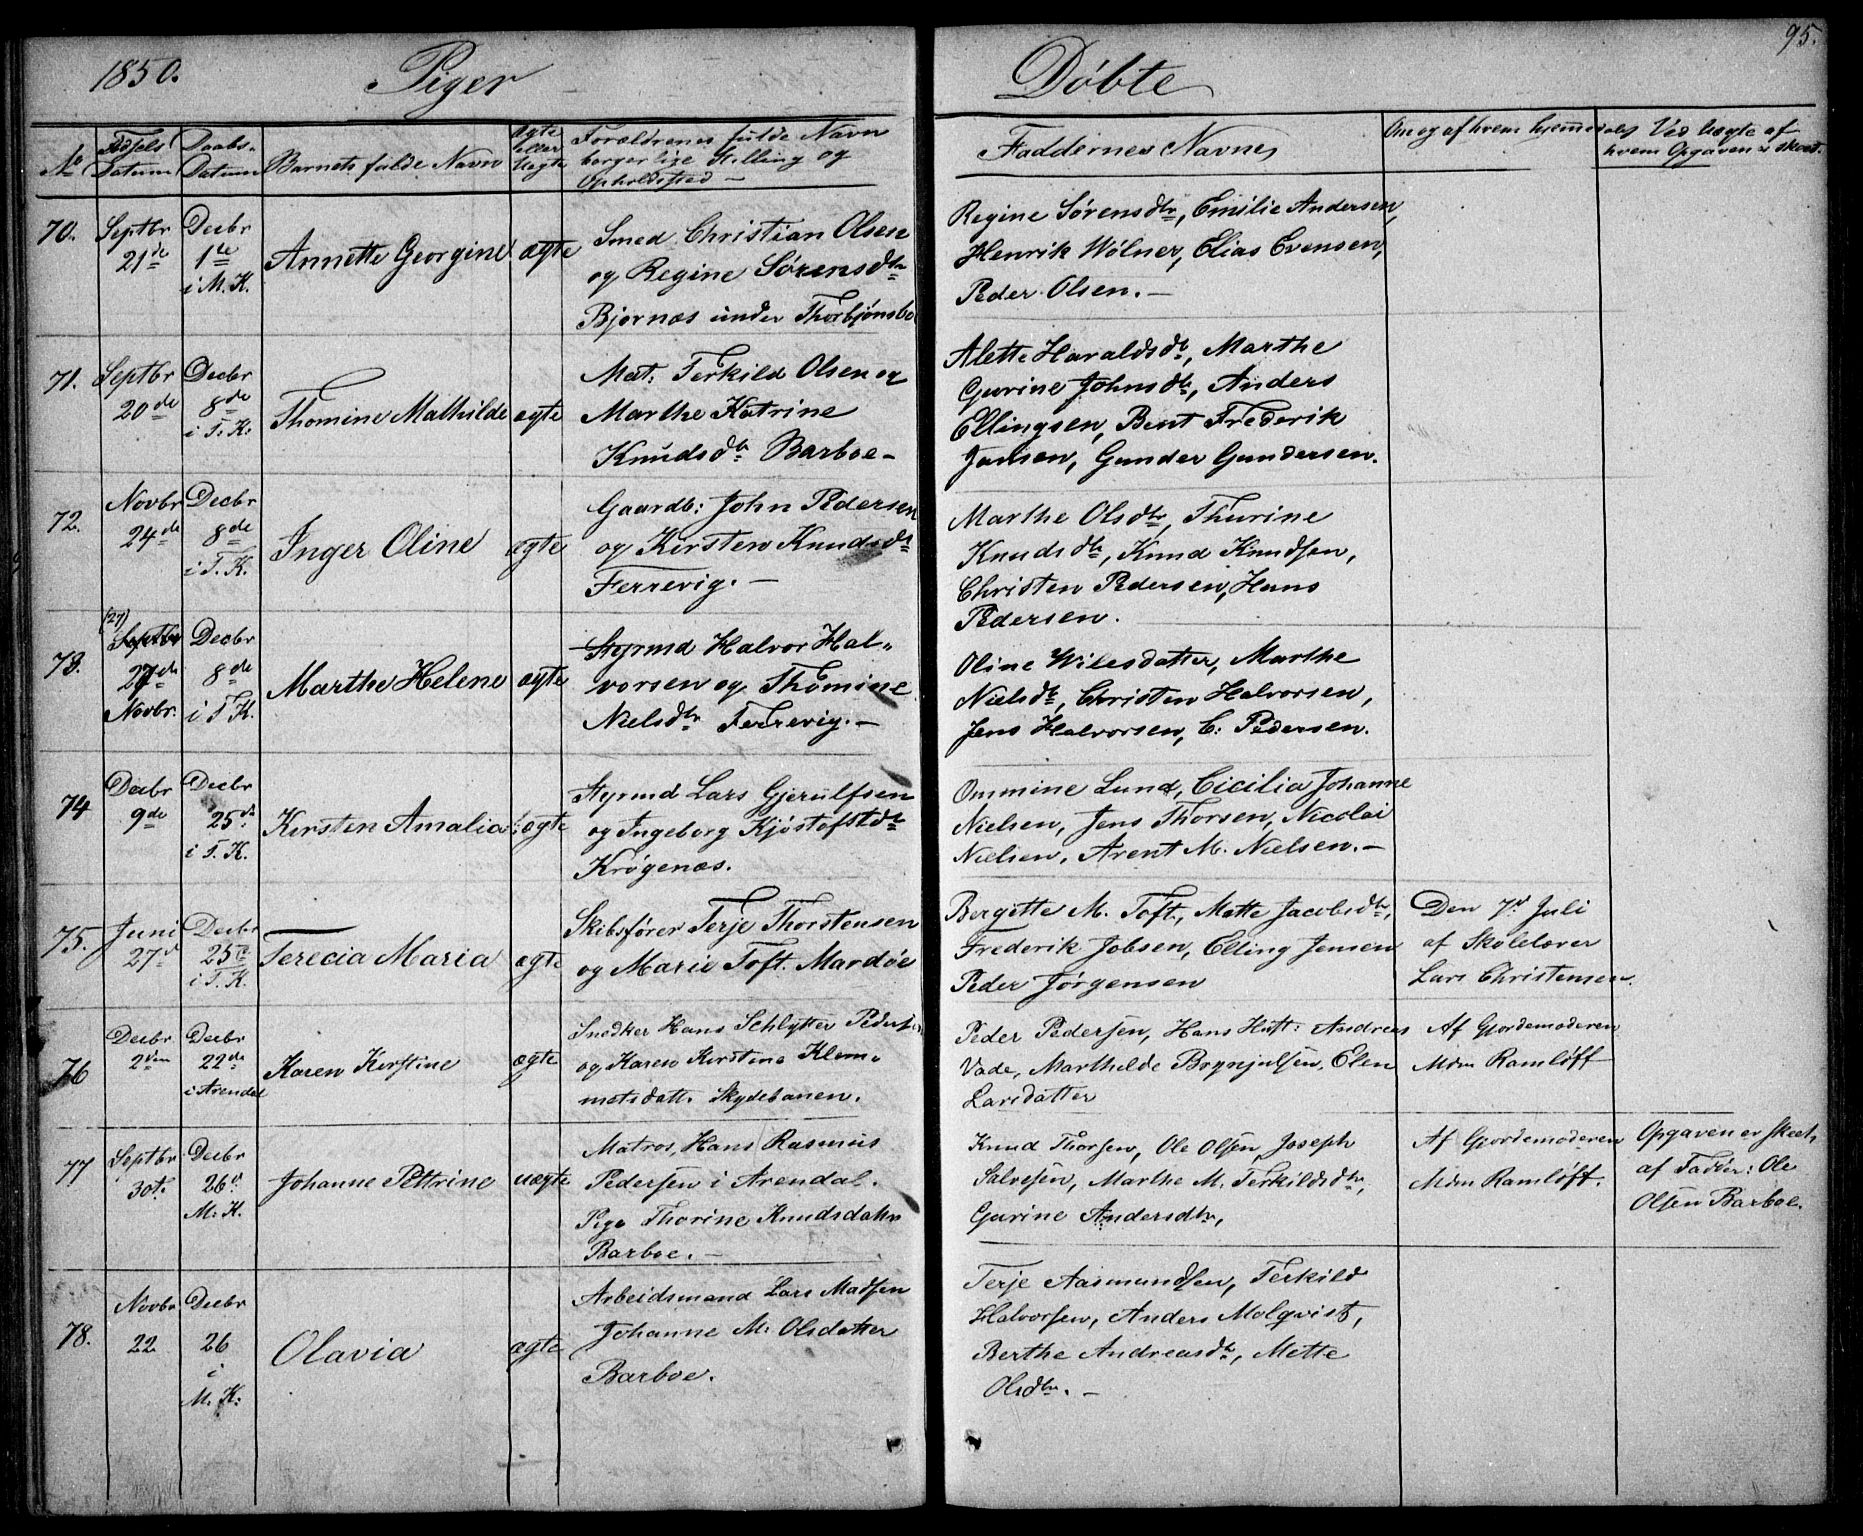 95.
1850. Piger Døbte
No
Fødsels Datum
Daabs-Datum
Barnets fulde Navn
Ægte eller Uægte
Forældrenes fulde Navn
borgerlige Stilling og
Opholdssted —
Faddernes Navne
Om og af hvem hjemmedøbt
Ved Uægte af
hvem Opgaven er skeet.
70.
Septbr
21de
Decbr
1te
i M. K.
Annette Georgine
ægte
Smed Christian Olsen
og Regine Sørensdtr
Bjornæs under Thorbjønsbo
Regine Sørensdtr, Emilie Andersen,
Henrik Wølner, Elias Evensen,
Peder Olsen. —
71.
Septbr
20de
Decbr
8de
i T. K.
Thomine Mathilde
ægte
Mat: Terkild Olsen og
Marthe Katrine
Knudsdtr Barboe —
Alette Haraldsdtr, Marthe
Gurine Johnsdtr, Anders
Ellingsen, Bent Frederik
Jansen, Gunder Gundersen.
72.
Novbr
24de
Decbr
8de
i T. K.
Inger Oline
ægte
Gaardb: John Pedersen
og Kirsten Knudsdtr
Ferrevig. —
Marthe Olsdtr, Thurine
Knudsdtr, Knud Knudsen,
Christen Pedersen, Hans
Pedersen.
73.
(27)
Septbr
27de
Novbr.
Decbr
8de
i T. K.
Marthe Helene
ægte
Styrmd Halvor Hal-
vorsen og Thomine
Nielsdtr Ferrevig. —
Oline Wilesdatter, Marthe
Nielsdtr, Christen Halvorsen,
Jens Halvorsen, C: Pedersen.
74
Decbr
9de
Decbr
25de
i T. K.
Kirsten Amalia
ægte
Styrmd Lars Gjerulfsen
og Ingeborg Kjøstofstdtr
Krøgenæs.
Ommine Lund, Cicilia Johanne
Nielsen, Jens Thorsen, Nicolai
Nielsen, Arent M. Nielsen. —
75.
Juni
27d
Decbr
25de
i T. K.
Terecia Maria
ægte
Skibsfører Terje Thorstensen
og Marie Toft. Mardøe
Bergette M. Toft, Mette Jacobsdtr,
Frederik Jobsen, Elling Jensen
Peder Jørgensen
Den 7d Juli
af Skolelærer
Lars Christensen.
76
Decbr
2den
Decbr
22de
i Arendal
Karen Kirstine
ægte
Snedker Hans Schlytter Peders
og Karen Kirstine Klem-
metsdatt. Skydebanen.
Peder Pedersen, Hans Hoft: Andreas
Vade, Marthilde Brynjulsen, Elen
Larsdatter
Af Gjordemoderen
Mdm Ramløff
77
Septbr
30t.
Decbr
26d
M. K.
Johanne Pettrine
uægte
Matros, Hans Rasmus
Pedersen i Arendal.
Pige Thorine Knudsdatr
Barboe. —
Knud Thorsen, Ole Olsen, Joseph
Salvesen, Marthe M. Terkildsdtr,
Gurine Andersdtr,
Af Gjordemoderen
Mdm Ramløft.
Opgaven er skeet,
af Fadder: Ole
Olsen Barboe.
78.
Novbr
22
Decbr
26
i
M. K:
Olavia
ægte
Arbeidsmand Lars Madsen
Johanne M. Olsdatter
Barboe.
Terje Aasmundsen, Terkild
Halvorsen, Anders Molqvist,
Berthe Andreasdtr, Mette
Olsdtr. —